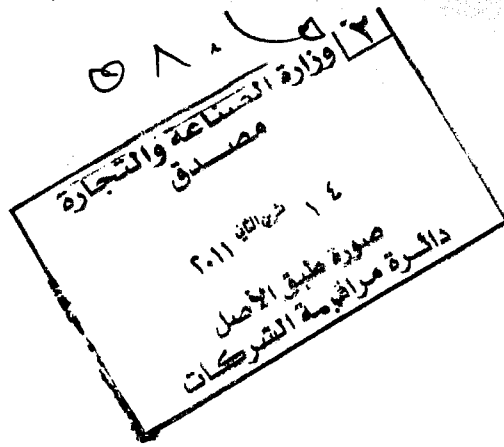 ٣
وزارة الصناعة والتجارة
مصدق
١٤ تشرين الثاني ٢٠١١
صورة طبق الأصل
دائرة مراقبة الشركات